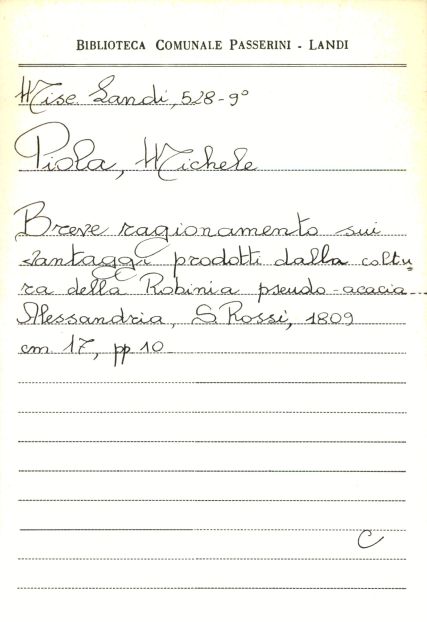 BIBLIOTECA COMUNALE PASSERINI - LANDI
Misc. Landi, 528-9°
Piola, Michele
Breve ragionamento sui
vantaggi prodotti dalla coltu=
ra della Robinia pseudo-acacia
Alessandria, S. Rossi, 1809
cm. 17, pp 10
C